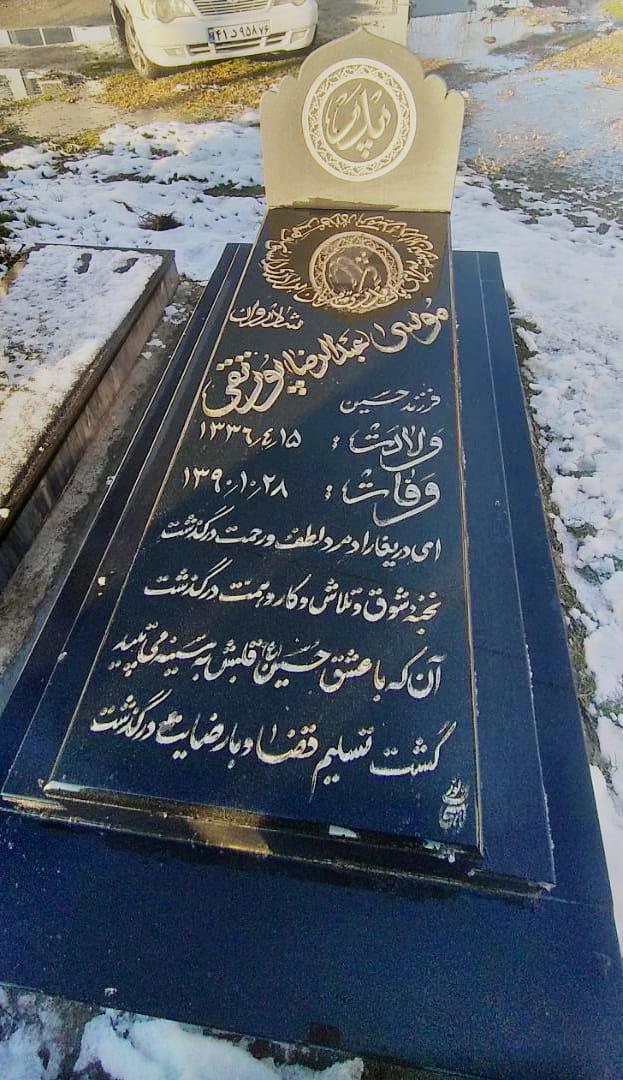 ۴۱ د ۹۵۸ ۷۶
پدر
شادروان
موسی عبدالرضاپور تقی
فرزند حسین
ولادت : ۱۳۳۶٫۴٫۱۵
وفات : ۱۳۹۰٫۱۰٫۲۸
ای دریغا رادمرد لطف و رحمت درگذشت
نخبه ذشوق و تلاش و کار و همت درگذشت
آن که با عشق حسین (ع) قلبش به سینه می تپید
گشت تسلیم قضا و با رضایت درگذشت